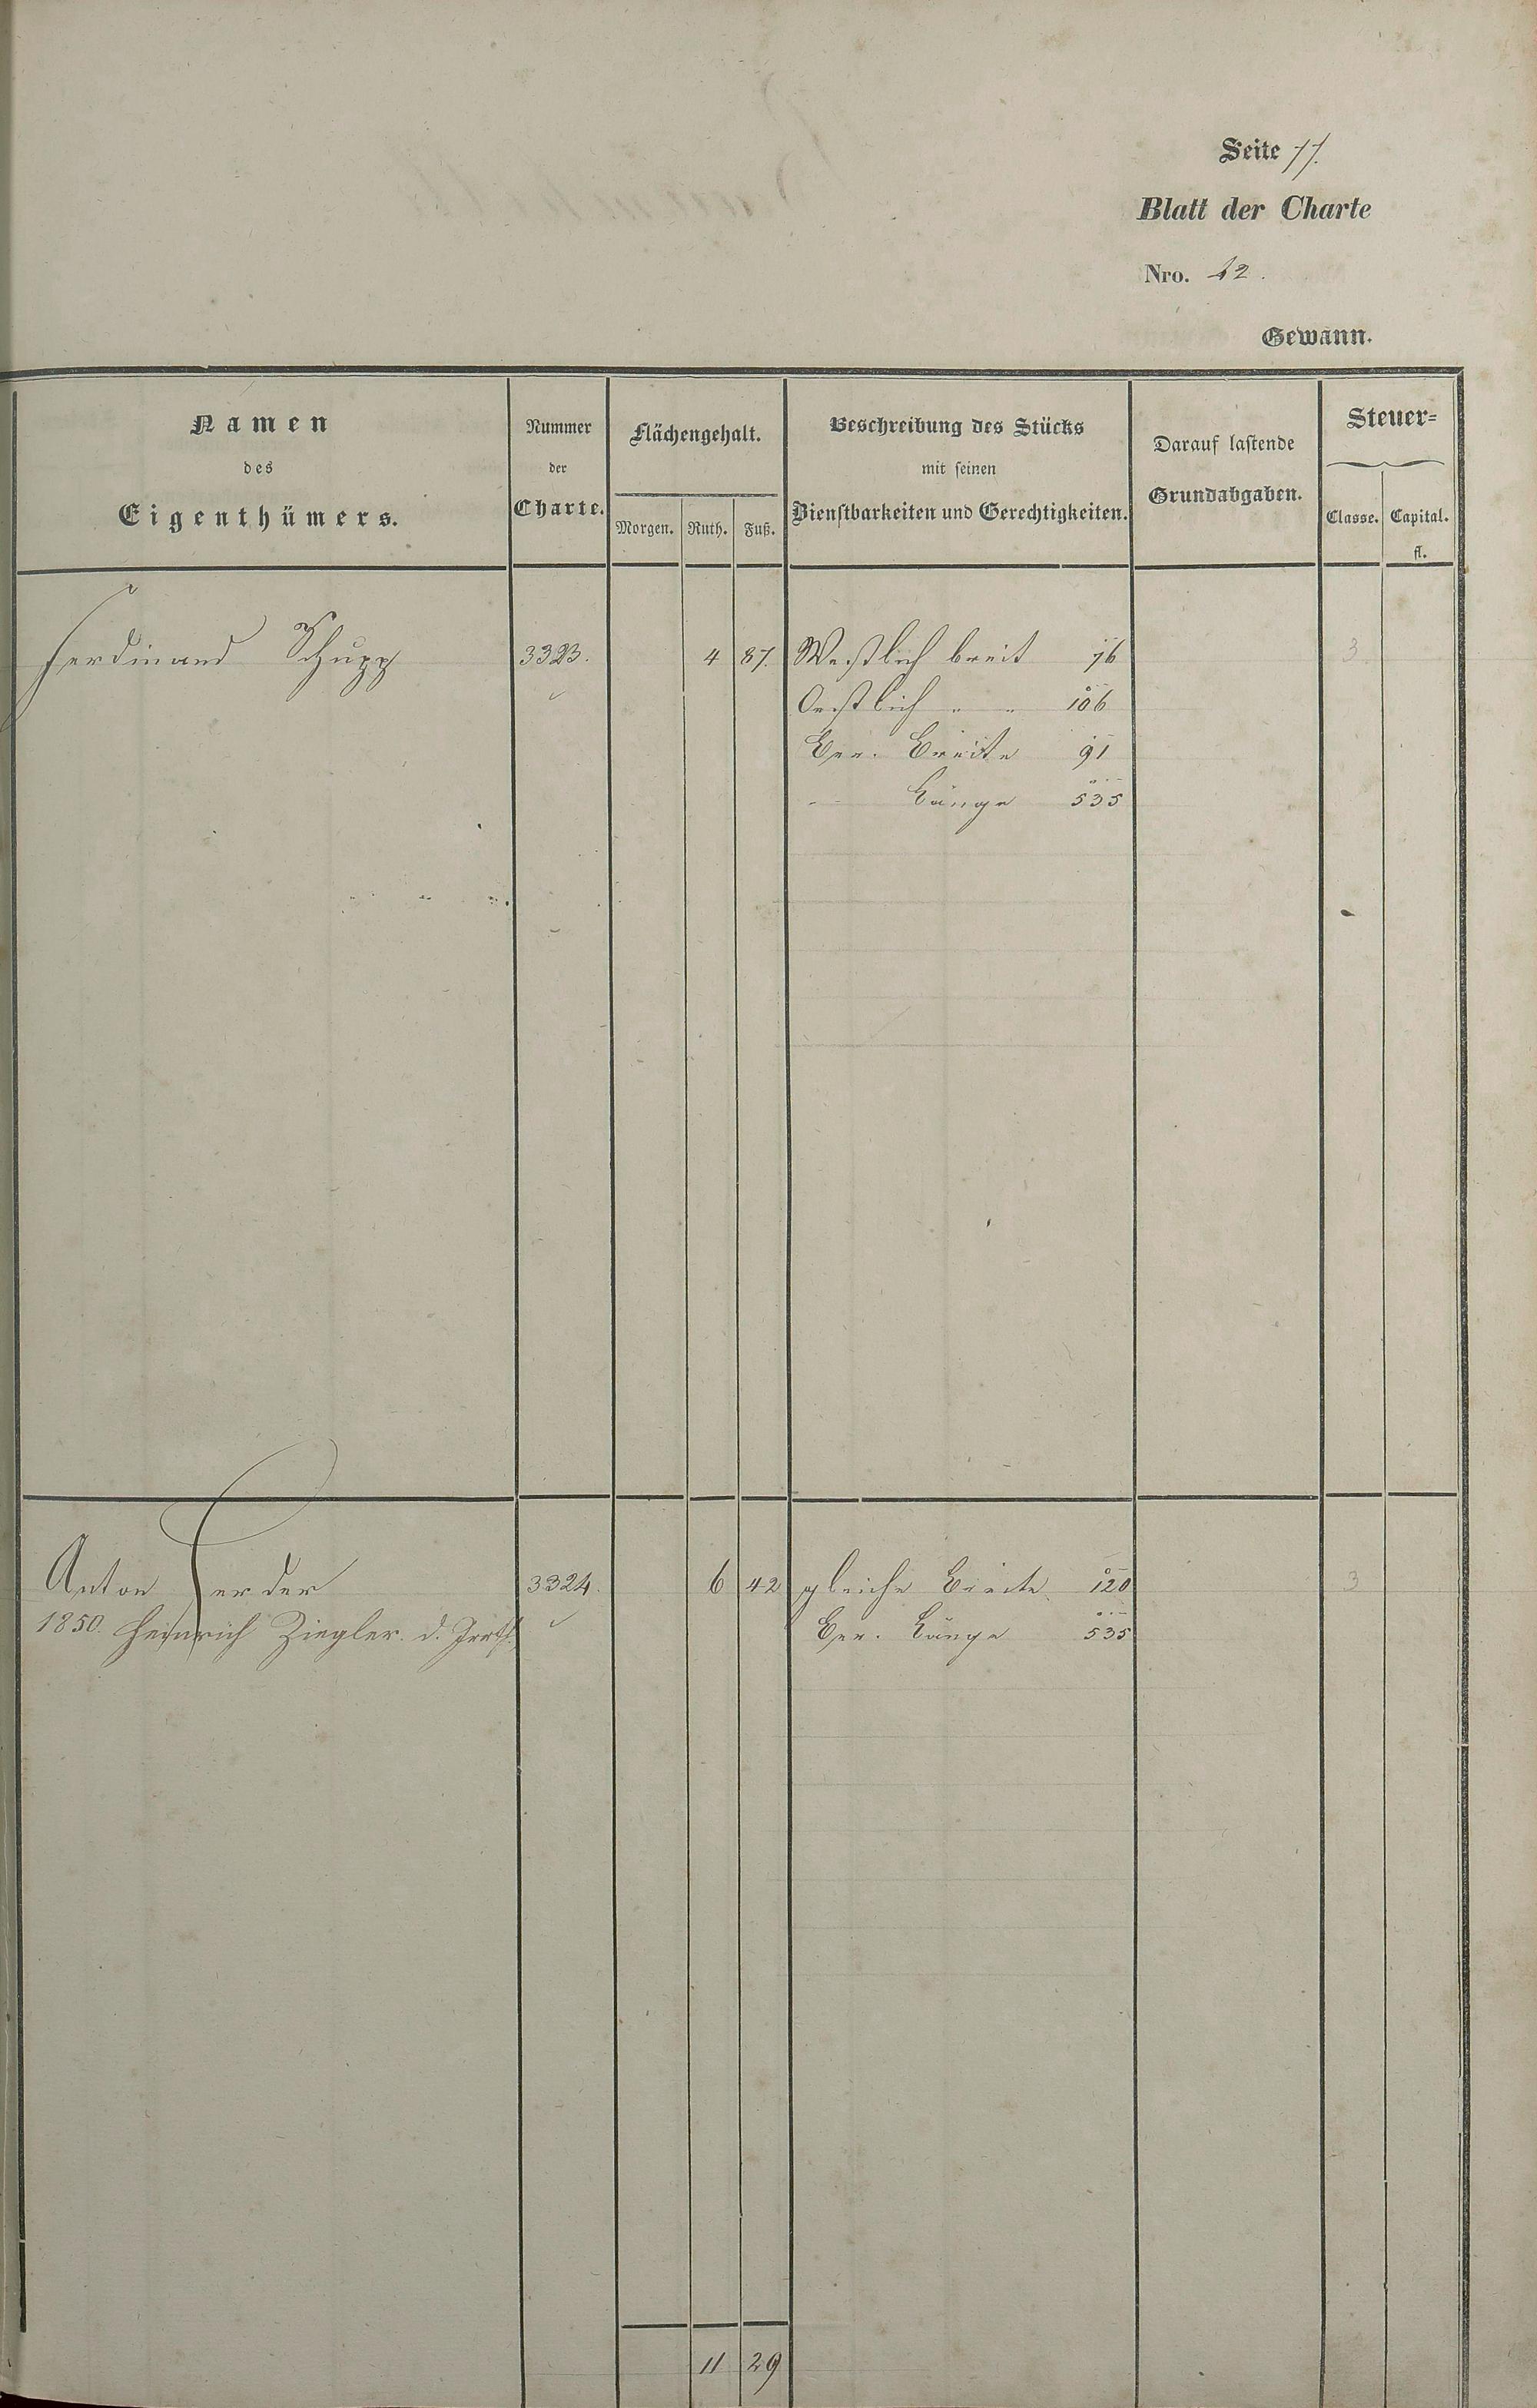 Seite 77.
Blatt der Charte
Nro. 42.
Gewann.
Namen
des
Eigenthümers.
Nummer
der
Charte.
Flächengehalt.
Morgen. Ruth. Fuß.
Beschreibung des Stücks
mit seinen
Dienstbarkeiten und Gerechtigkeiten.
Darauf lastende
Grundabgaben.
Steuer-
Classe. Capital.
fl.
Ferdinand Schupp 3323. 4 87. Westlich breit 76 3
Oestlich " " 106
Ber. Breite 91
" Länge 535
Anton Herder 3324. 6 42 gleiche Breite 120 3
1850. Heinrich Ziegler d.
Ber. Länge 535
11 29